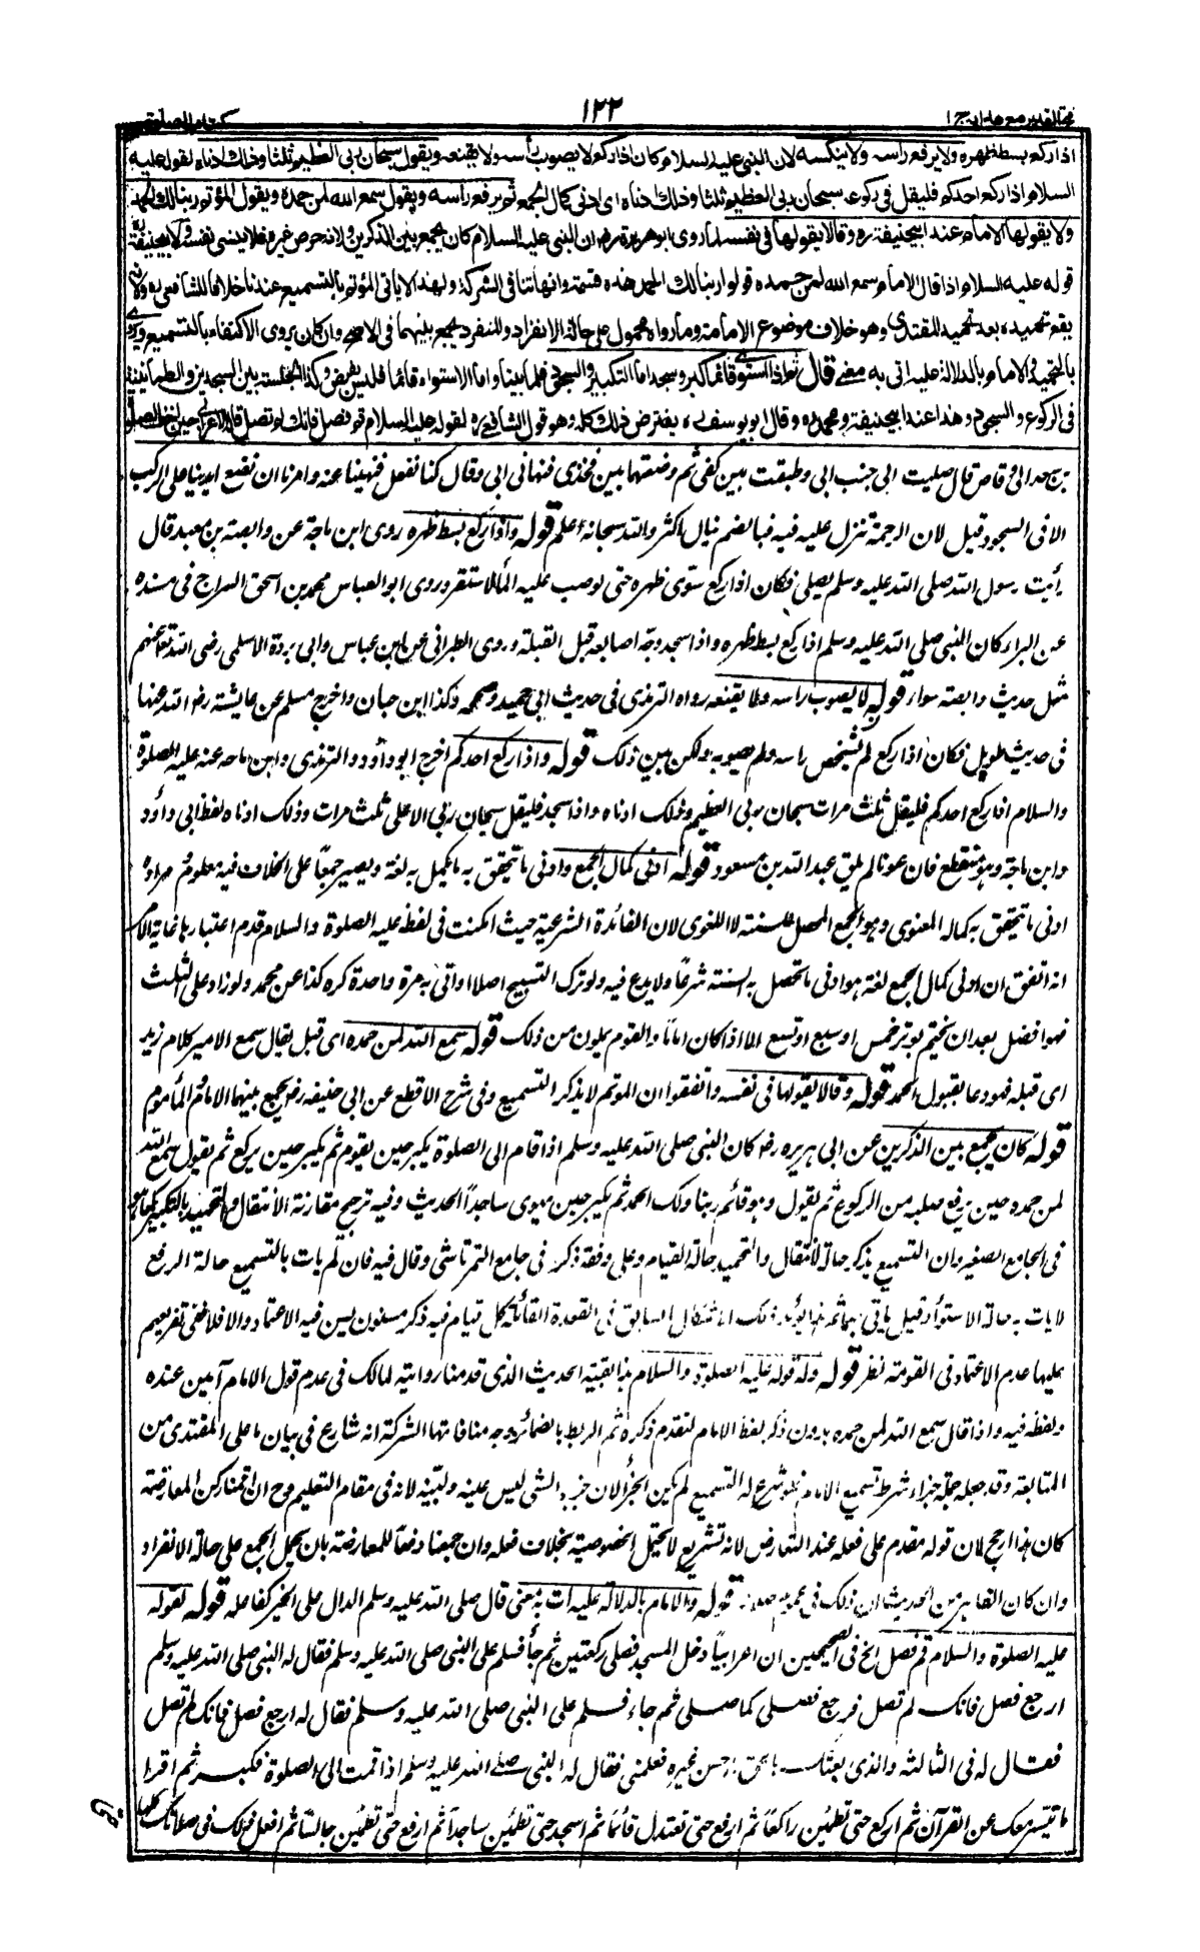 فتح القدير مع هدايه ج ١
١٢٢
كتاب الصلوة
اذا ركع بسط ظهره ولا يرفع راسه ولا ينكسه لان النبى عليه السلام كان اذا ركع لا يصوب راسه ولا يقنعه ويقول سبحان ربى العظيم ثلثا وذلك ادناه لقوله عليه
السلام اذا ركع احدكم فليقل فى ركوعه سبحان ربى العظيم ثلثا وذلك ادناه اى ادنى كمال الجمع ثم يرفع راسه ويقول سمع الله لمن حمده ويقول المؤتم ربنا لك الحمد
ولا يقولها الامام عند ابيحنيفة ره وقالا يقولها فى نفسه لما روى ابو هريرة رض ان النبى عليه السلام كان يجمع بين الذكرين ولانه حرض غيره فلا ينسى نفسه ولابيحنيفة ره
قوله عليه السلام اذا قال الامام سمع الله لمن حمده قولوا ربنا لك الحمد هذه قسمة وانها تنافى الشركة ولهذا لا ياتى المؤتم بالتسميع عندنا خلافا للشافعى ره ولانه
يقع تحميده بعد تحميد المقتدى وهو خلاف موضوع الامامة وما رواه محمول على حالة الانفراد وللمنفرد يجمع بينهما فى الاصح وان كان يروى الاكتفاء بالتسميع ويروى
بالتحميد والامام بالدلالة عليه اتى به معنى قال ثم اذا استوى قائما كبر وسجد اما التكبير والسجود فلما بينا واما الاستواء قائما فليس بفرض وكذا الجلسة بين السجدتين والطمانينة
فى الركوع والسجود وهذا عند ابيحنيفة ومحمد ره وقال ابو يوسف ره يفترض ذلك كله وهو قول الشافعى ره لقوله عليه السلام قم فصل فانك لم تصل قاله لاعرابى حين اخف الصلوة
بن سعد ابن ابى وقاص قال صليت الى جنب ابى وطبقت بين كفى ثم وضعتهما بين فخذى فنهانى ابى وقال كنا نفعل فنهينا عنه وامرنا ان نضع ايدينا على الركب
الا فى السجود قيل لان الرحمة تنزل عليه فيه فبالضم ينال اكثر والله سبحانه اعلم قوله واذا ركع بسط ظهره روى ابن ماجة عن وابصة بن معبد قال
رأيت رسول الله صلى الله عليه وسلم يصلى فكان اذا ركع سوى ظهره حتى لو صب عليه الماء لاستقر وروى ابو العباس محمد بن اسحق السراج فى مسنده
عن البراء كان النبى صلى الله عليه وسلم اذا ركع بسط ظهره واذا سجد وجّه اصابعه قبل القبلة وروى الطبرانى عن ابن عباس وابى بردة الاسلمى رضى الله تعالى عنهم
مثل حديث وابصة سواء قوله لا يصوب راسه ولا يقنعه رواه الترمذى فى حديث ابى حميد وصححه وكذا ابن حبان واخرج مسلم عن عائشة رضى الله عنها
فى حديث طويل فكان اذا ركع لم يشخص راسه ولم يصوبه ولكن بين ذلك قوله واذا ركع احدكم اخرج ابو داؤد والترمذى وابن ماجه عنه عليه الصلوة
والسلام اذا ركع احدكم فليقل ثلث مرات سبحان ربى العظيم وذلك ادناه واذا سجد فليقل سبحان ربى الاعلى ثلث مرات وذلك ادناه لفظ ابى داؤد
وابن ماجة وهو منقطع فان عونا لم يلق عبد الله بن مسعود قوله ادنى كمال الجمع وادنى ما يتحقق به ما يكمل به لغة ويصير جمعا على الخلاف فيه معلوم مراده
ادنى ما يتحقق به كماله المعنوى وهو الجمع المحصل للسنة لا اللغوى لان الفائدة الشرعية حيث امكنت فى لفظه عليه الصلوة والسلام قدم اعتبارها غاية الامر
انه اتفق ان ادنى كمال الجمع لغة هو ادنى ما تحصل به السنة شرعا ولا بدع فيه ولو ترك التسبيح اصلا او اتى به مرة واحدة كره كذا عن محمد ولو زاد على الثلث
فهو افضل بعد ان يختم بوتر خمس او سبع او تسع الا اذا كان اماما والقوم يملون من ذلك قوله سمع الله لمن حمده اى قبل يقال سمع الامير كلام زيد
اى قبله فهو دعا بقبول الحمد قوله وقالا يقولها فى نفسه واتفقوا ان الموتم لا يذكر التسميع وفى شرح الاقطع عن ابى حنيفه رض يجمع بينهما الامام والمأموم
قوله كان يجمع بين الذكرين عن ابى هريره رض كان النبى صلى الله عليه وسلم اذا قام الى الصلوة يكبر حين يقوم ثم يكبر حين يركع ثم يقول سمع الله
لمن حمده حين يرفع صلبه من الركوع ثم يقول وهو قائم ربنا ولك الحمد ثم يكبر حين يهوى ساجدا الحديث وفيه ترجيح مقارنة الانتقال والتحميد بالتكبير كما هو
فى الجامع الصغير وان التسميع يذكر حالة الانتقال والتحميد حالة القيام وعلى وفقه ذكر فى جامع التمرتاشى وقال فيه فان لم يات بالتسميع حالة الرفع
لا يات به حالة الاستواء وقيل ياتى بهما ثم هذا يؤيد ذلك الاشكال السابق فى القعدة القائلة كل قيام فيه ذكر مسنون يسن فيه الاعتماد والا فلا ففى تفريعهم
عليها عدم الاعتماد فى القومة نظر قوله وله قوله عليه الصلوة والسلام هذا بقية الحديث الذى قدمنا رواية لمالك فى عدم قول الامام آمين عنده
ولفظه فيه واذا قال سمع الله لمن حمده بدون ذكر لفظ الامام لتقدم ذكره ثم الربط بالضمائر وجه منافاتها الشركة انه شارع فى بيان ما على المقتدى من
المتابعة وقد جعله جملة جزاء شرط تسميع الامام فلو شرع له التسميع لم يكن الجزاء لان جزء الشئ ليس عينه ولتبينه لانه فى مقام التعليم وح ان اقمنا ركن المعارضة
كان هذا ارجح لان قوله مقدم على فعله عند التعارض لانه تشريع لا يحتمل الخصوصية بخلاف فعله وان جمعنا دفعا للمعارضة بان يحمل الجمع على حالة الانفراد
وان كان الظاهر من الحديث ان ذلك فى عموم صلاته قوله والامام بالدلالة عليه آت به معنى قال صلى الله عليه وسلم الدال على الخير كفاعله قوله لقوله
عليه الصلوة والسلام قم فصل الخ فى الصحيحين ان اعرابيا دخل المسجد فصلى ركعتين ثم جاء فسلم على النبى صلى الله عليه وسلم فقال له النبى صلى الله عليه وسلم
ارجع فصل فانك لم تصل فرجع فصلى كما صلى ثم جاء فسلم على النبى صلى الله عليه وسلم فقال له ارجع فصل فانك لم تصل
فقال له فى الثالثه والذى بعثك بالحق ما احسن غيره فعلمنى فقال له النبى صلى الله عليه وسلم اذا قمت الى الصلوة فكبر ثم اقرا
ما تيسر معك من القرآن ثم اركع حتى تطمئن راكعا ثم ارفع حتى تعتدل قائما ثم اسجد حتى تطمئن ساجدا ثم ارفع حتى تطمئن جالسا ثم افعل ذلك فى صلاتك كلها